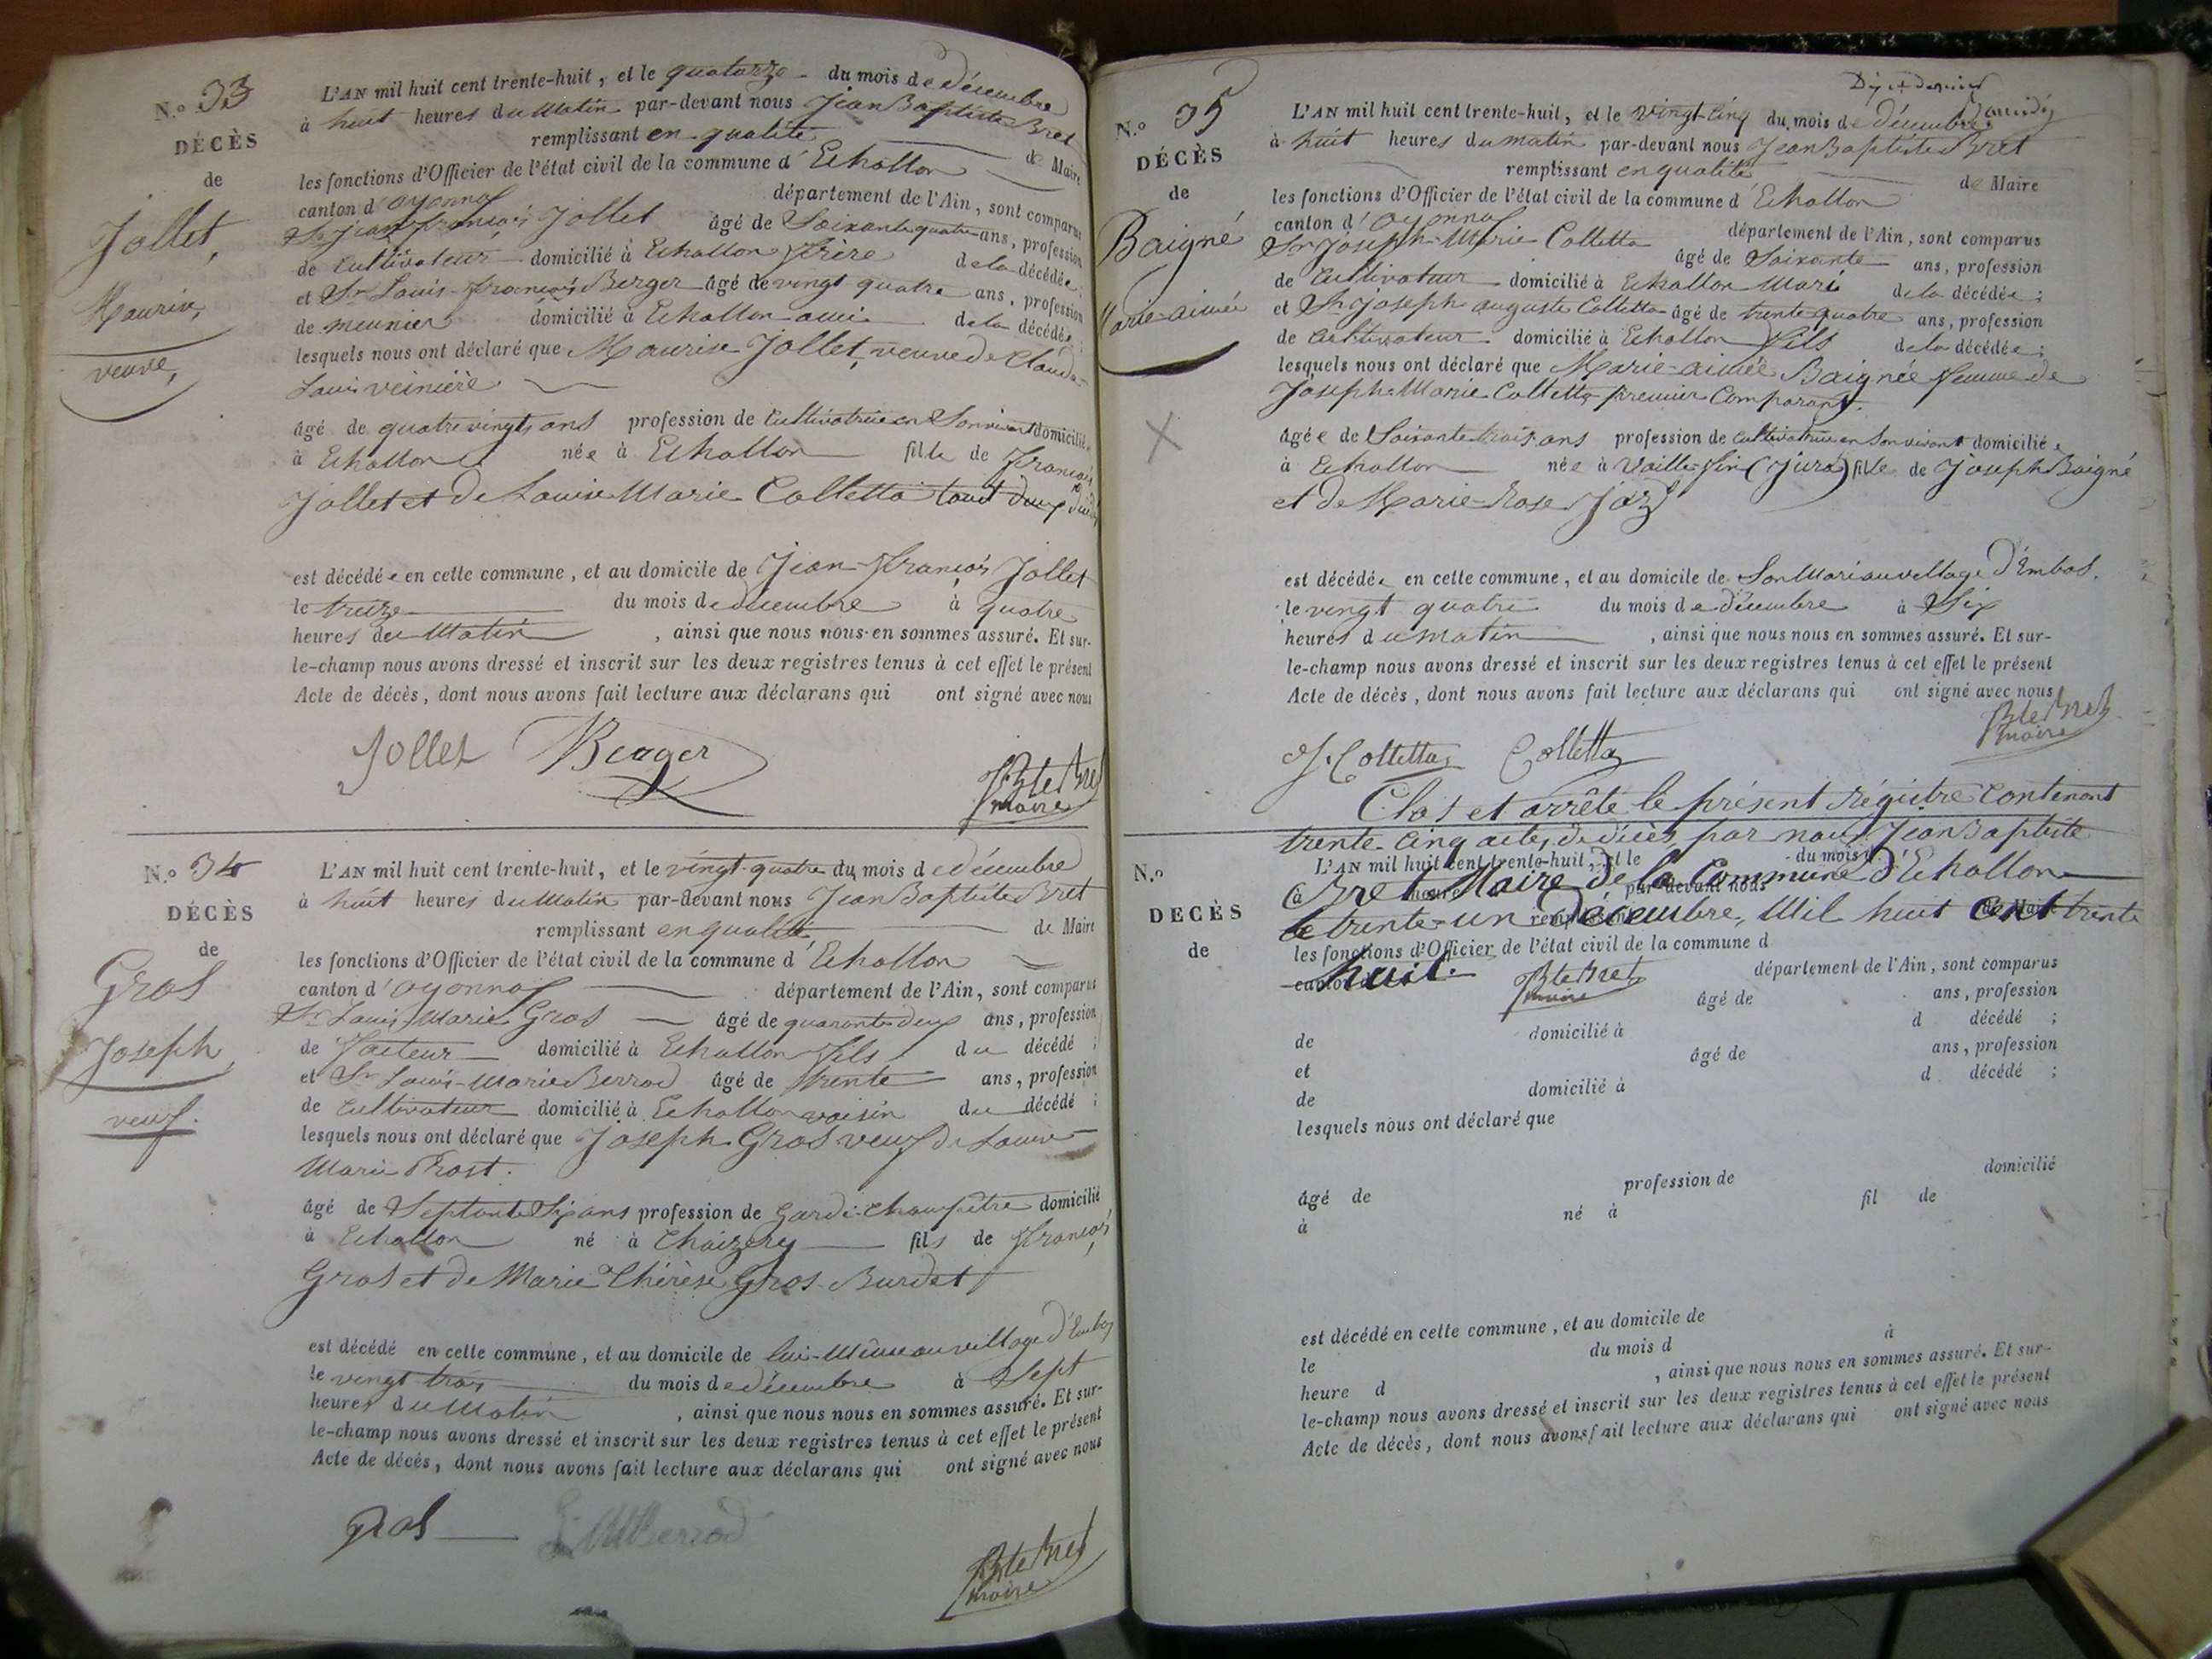 N.o 33
DÉCÈS
de
Jollet,
Maurise,
veuve,
L'AN mil huit cent trente-huit, et le quatorze du mois de décembre
à huit heures du Matin par-devant nous Jean Baptiste Bret
remplissant en qualité de Maire
les fonctions d'Officier de l'état civil de la commune d'Echallon
canton d'oyonnax département de l'Ain, sont comparus
Sr Jean François Jollet âgé de Soixante quatre ans, profession
de Cultivateur domicilié à Echallon frère de la décédée;
et Sr Louis-François Berger âgé de vingt quatre ans, profession
de meunier domicilié à Echallon ami de la décédée;
lesquels nous ont déclaré que Maurise Jollet, veuve de Claude
Louis veinière
âgé de quatre vingts ans profession de Cultivatrice en Son vivant domicilié
à Echallon née à Echallon fille de François
Jollet et de Louise Marie Colletta tout deux
est décédée en cette commune, et au domicile de Jean-François Jollet
le treize du mois de décembre à quatre
heures du Matin, ainsi que nous nous en sommes assuré. Et sur-
le-champ nous avons dressé et inscrit sur les deux registres tenus à cet effet le présent
Acte de décès, dont nous avons fait lecture aux déclarans qui ont signé avec nous
Jollet Berger
JBte Bret
maire
N.o 34
DÉCÈS
de
Gros
Joseph,
veuf.
L'AN mil huit cent trente-huit, et le vingt-quatre du mois de décembre
à huit heures du Matin par-devant nous Jean Baptiste Bret
remplissant en qualité de Maire
les fonctions d'Officier de l'état civil de la commune d'Echallon
canton d'oyonnax département de l'Ain, sont comparus
Sr Louis-Marie Gros âgé de quarante deux ans, profession
de facteur domicilié à Echallon fils du décédé;
et Sr Louis-Marie Berrod âgé de trente ans, profession
de Cultivateur domicilié à Echallon voisin du décédé;
lesquels nous ont déclaré que Joseph Gros veuf de Louise
Marie Prost.
âgé de Septante Six ans profession de Garde-champêtre domicilié
à Echallon né à Chézery fils de François
Gros et de Marie Thérèse Gros-Burdet
est décédé en cette commune, et au domicile de lui-Même au village d'Embos
le vingt trois du mois de décembre à Sept
heures du Matin, ainsi que nous nous en sommes assuré. Et sur-
le-champ nous avons dressé et inscrit sur les deux registres tenus à cet effet le présent
Acte de décès, dont nous avons fait lecture aux déclarans qui ont signé avec nous
gros L. M. Berrod
JBte Bret
maire
N.o 35
DÉCÈS
de
Baigné
Marie-aimée
L'AN mil huit cent trente-huit, et le vingt-cinq du mois de décembre
à huit heures du matin par-devant nous Jean Baptiste Bret
remplissant en qualité de Maire
les fonctions d'Officier de l'état civil de la commune d'Echallon
canton d'oyonnax département de l'Ain, sont comparus
Sr Joseph-Marie Colletta âgé de Soixante ans, profession
de Cultivateur domicilié à Echallon Mari de la décédée;
et Sr Joseph auguste Colletta âgé de trente quatre ans, profession
de Cultivateur domicilié à Echallon fils de la décédée;
lesquels nous ont déclaré que Marie-aimée Baignée femme de
Joseph-Marie Colletta premier Comparant.
âgée de Soixante trois ans profession de Cultivatrice en Son vivant domiciliée
à Echallon née à Vaille-fin (Jura) fille de Joseph Baigné
et de Marie-Rose Joz
est décédée en cette commune, et au domicile de Son Mari au village d'Embos.
le vingt quatre du mois de décembre à Six
heures du matin, ainsi que nous nous en sommes assuré. Et sur-
le-champ nous avons dressé et inscrit sur les deux registres tenus à cet effet le présent
Acte de décès, dont nous avons fait lecture aux déclarans qui ont signé avec nous
J. Colletta Colletta
JBte Bret
maire
Clos et arrêté le présent régistre contenant
trente-cinq actes de décès, par nous Jean Baptiste
Bret Maire de la Commune d'Echallon
le trente-un décembre, Mil huit cent trente
huit.
JBte Bret
maire
N.o
DÉCÈS
de
L'AN mil huit cent trente-huit, et le du mois d
à heure par-devant nous
remplissant de Maire
les fonctions d'Officier de l'état civil de la commune d
canton d département de l'Ain, sont comparus
âgé de ans, profession
de domicilié à d décédé;
et âgé de ans, profession
de domicilié à d décédé;
lesquels nous ont déclaré que
âgé de profession de domicilié
à né à fil de
est décédé en cette commune, et au domicile de
le du mois d à
heure d, ainsi que nous nous en sommes assuré. Et sur-
le-champ nous avons dressé et inscrit sur les deux registres tenus à cet effet le présent
Acte de décès, dont nous avons fait lecture aux déclarans qui ont signé avec nous